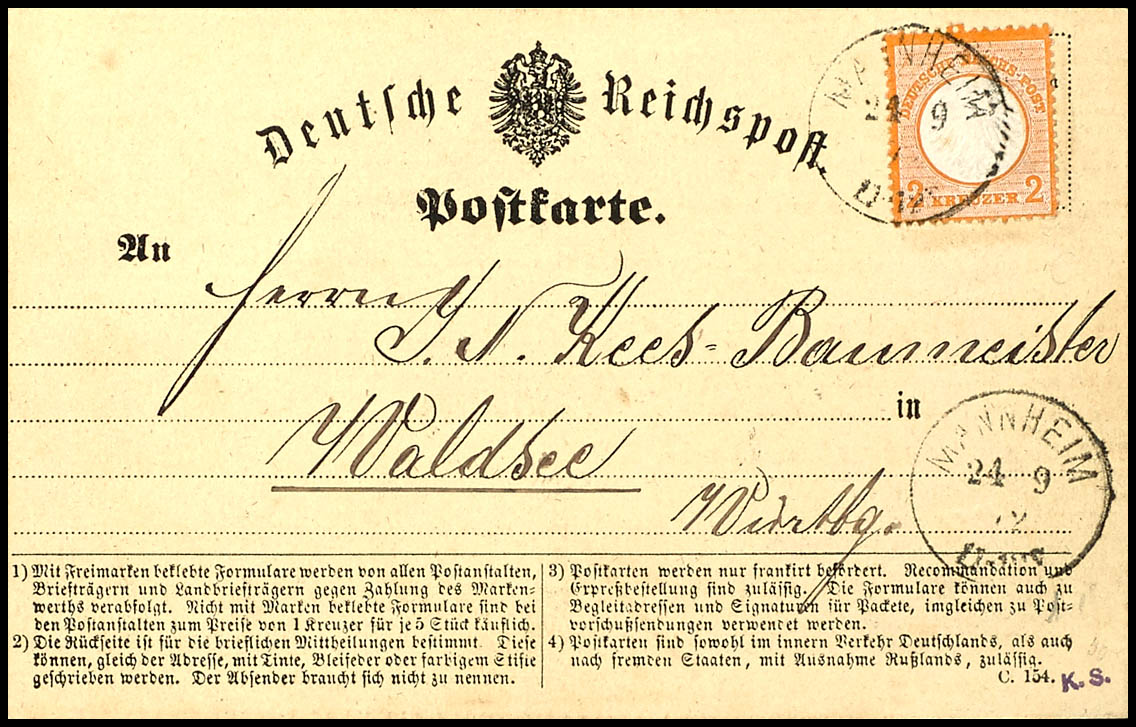 Deutsche Reichspost.
Postkarte.
MANNHEIM
24 9
DEUTSCHE REICHS-POST
2 KREUZER 2
An
Herrn
J. N. Kees-Baumeister
in
Waldsee
Würtbg.
MANNHEIM
24 9
72
1) Mit Freimarken beklebte Formulare werden von allen Postanstalten,
Briefträgern und Landbriefträgern gegen Zahlung des Marken-
werths verabfolgt. Nicht mit Marken beklebte Formulare sind bei
den Postanstalten zum Preise von 1 Kreuzer für je 5 Stück käuflich.
2) Die Rückseite ist für die brieflichen Mittheilungen bestimmt. Diese
können, gleich der Adresse, mit Tinte, Bleifeder oder farbigem Stifte
geschrieben werden. Der Absender braucht sich nicht zu nennen.
3) Postkarten werden nur frankirt befördert. Recommandation und
Expreßbestellung sind zulässig. Die Formulare können auch zu
Begleitadressen und Signaturen für Packete, imgleichen zu Post-
vorschußsendungen verwendet werden.
4) Postkarten sind sowohl im innern Verkehr Deutschlands, als auch
nach fremden Staaten, mit Ausnahme Rußlands, zulässig.
C. 154.
K. S.